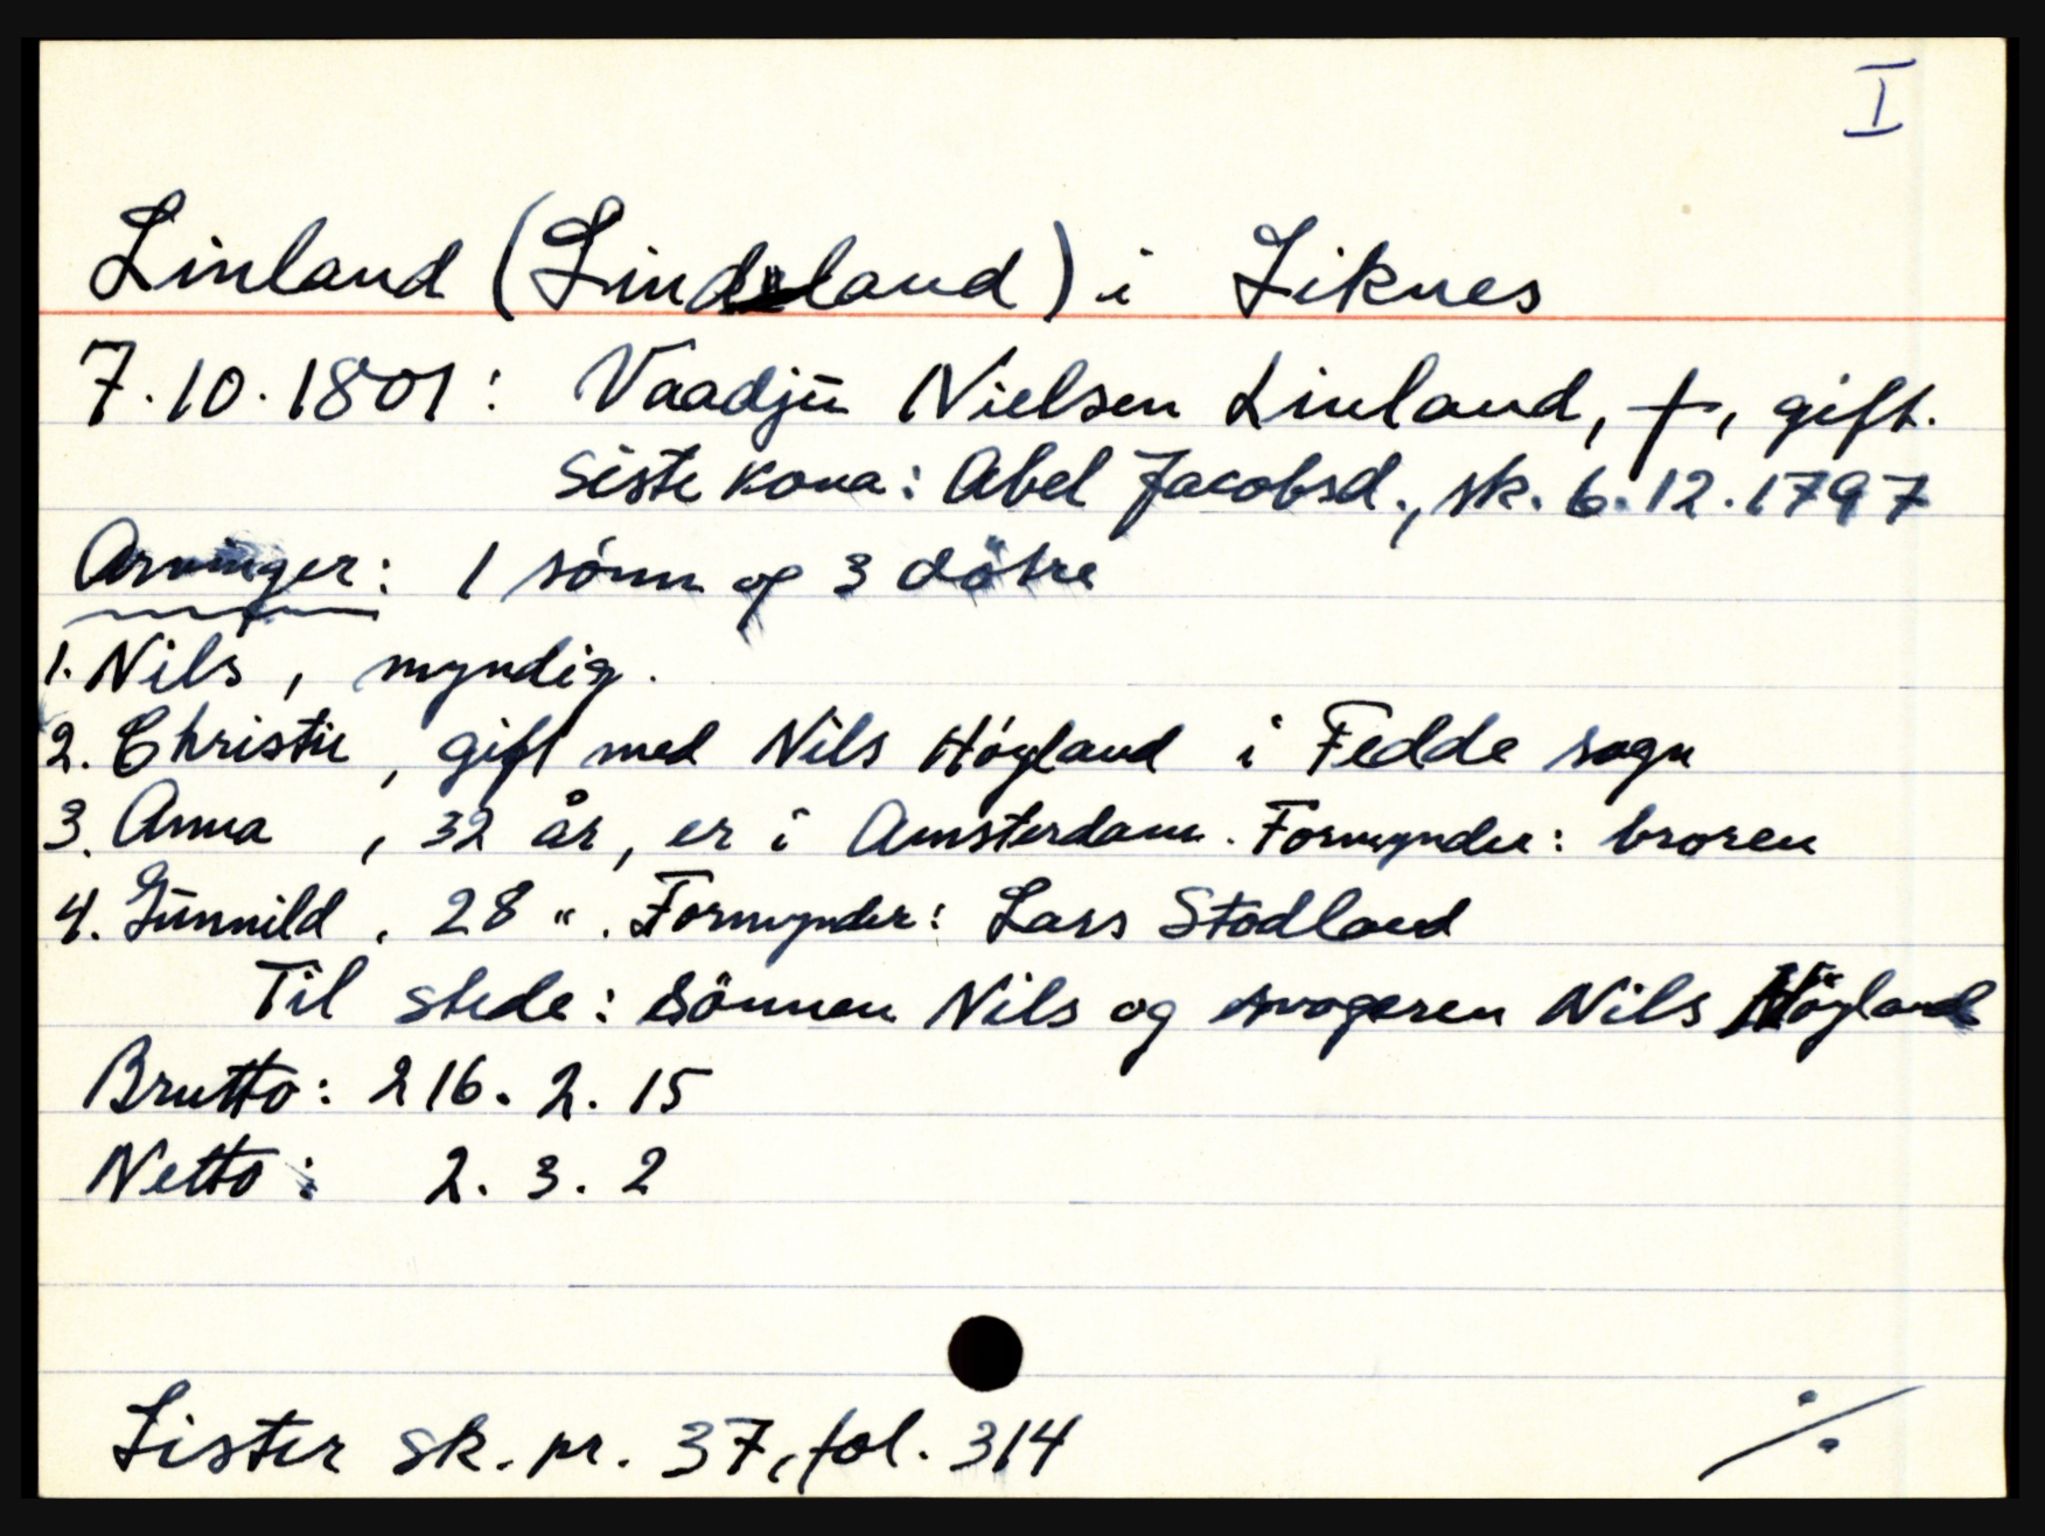 I
Linland (Lindeland) i Liknes
7.10.1801: Vaadjū Nielsen Linland, †, gift.
Siste kona: Abel Jacobsd., sk. 6.12.1797
Arvinger: 1 sónn og 3 dötre
1. Nils, myndig.
2. Christie, gift med Nils Hóyland i Fedde sogn
3. Anna, 32 år, er i Amsterdam. Formynder: broren
4. Gūnnild, 28 ". Formynder: Lars Stodland
Til stede: sönnen Nils og svogeren Nils Höyland
Brutto: 216. 2. 15
Netto: 2. 3. 2
Lister sk. pr. 37, fol. 314
./.